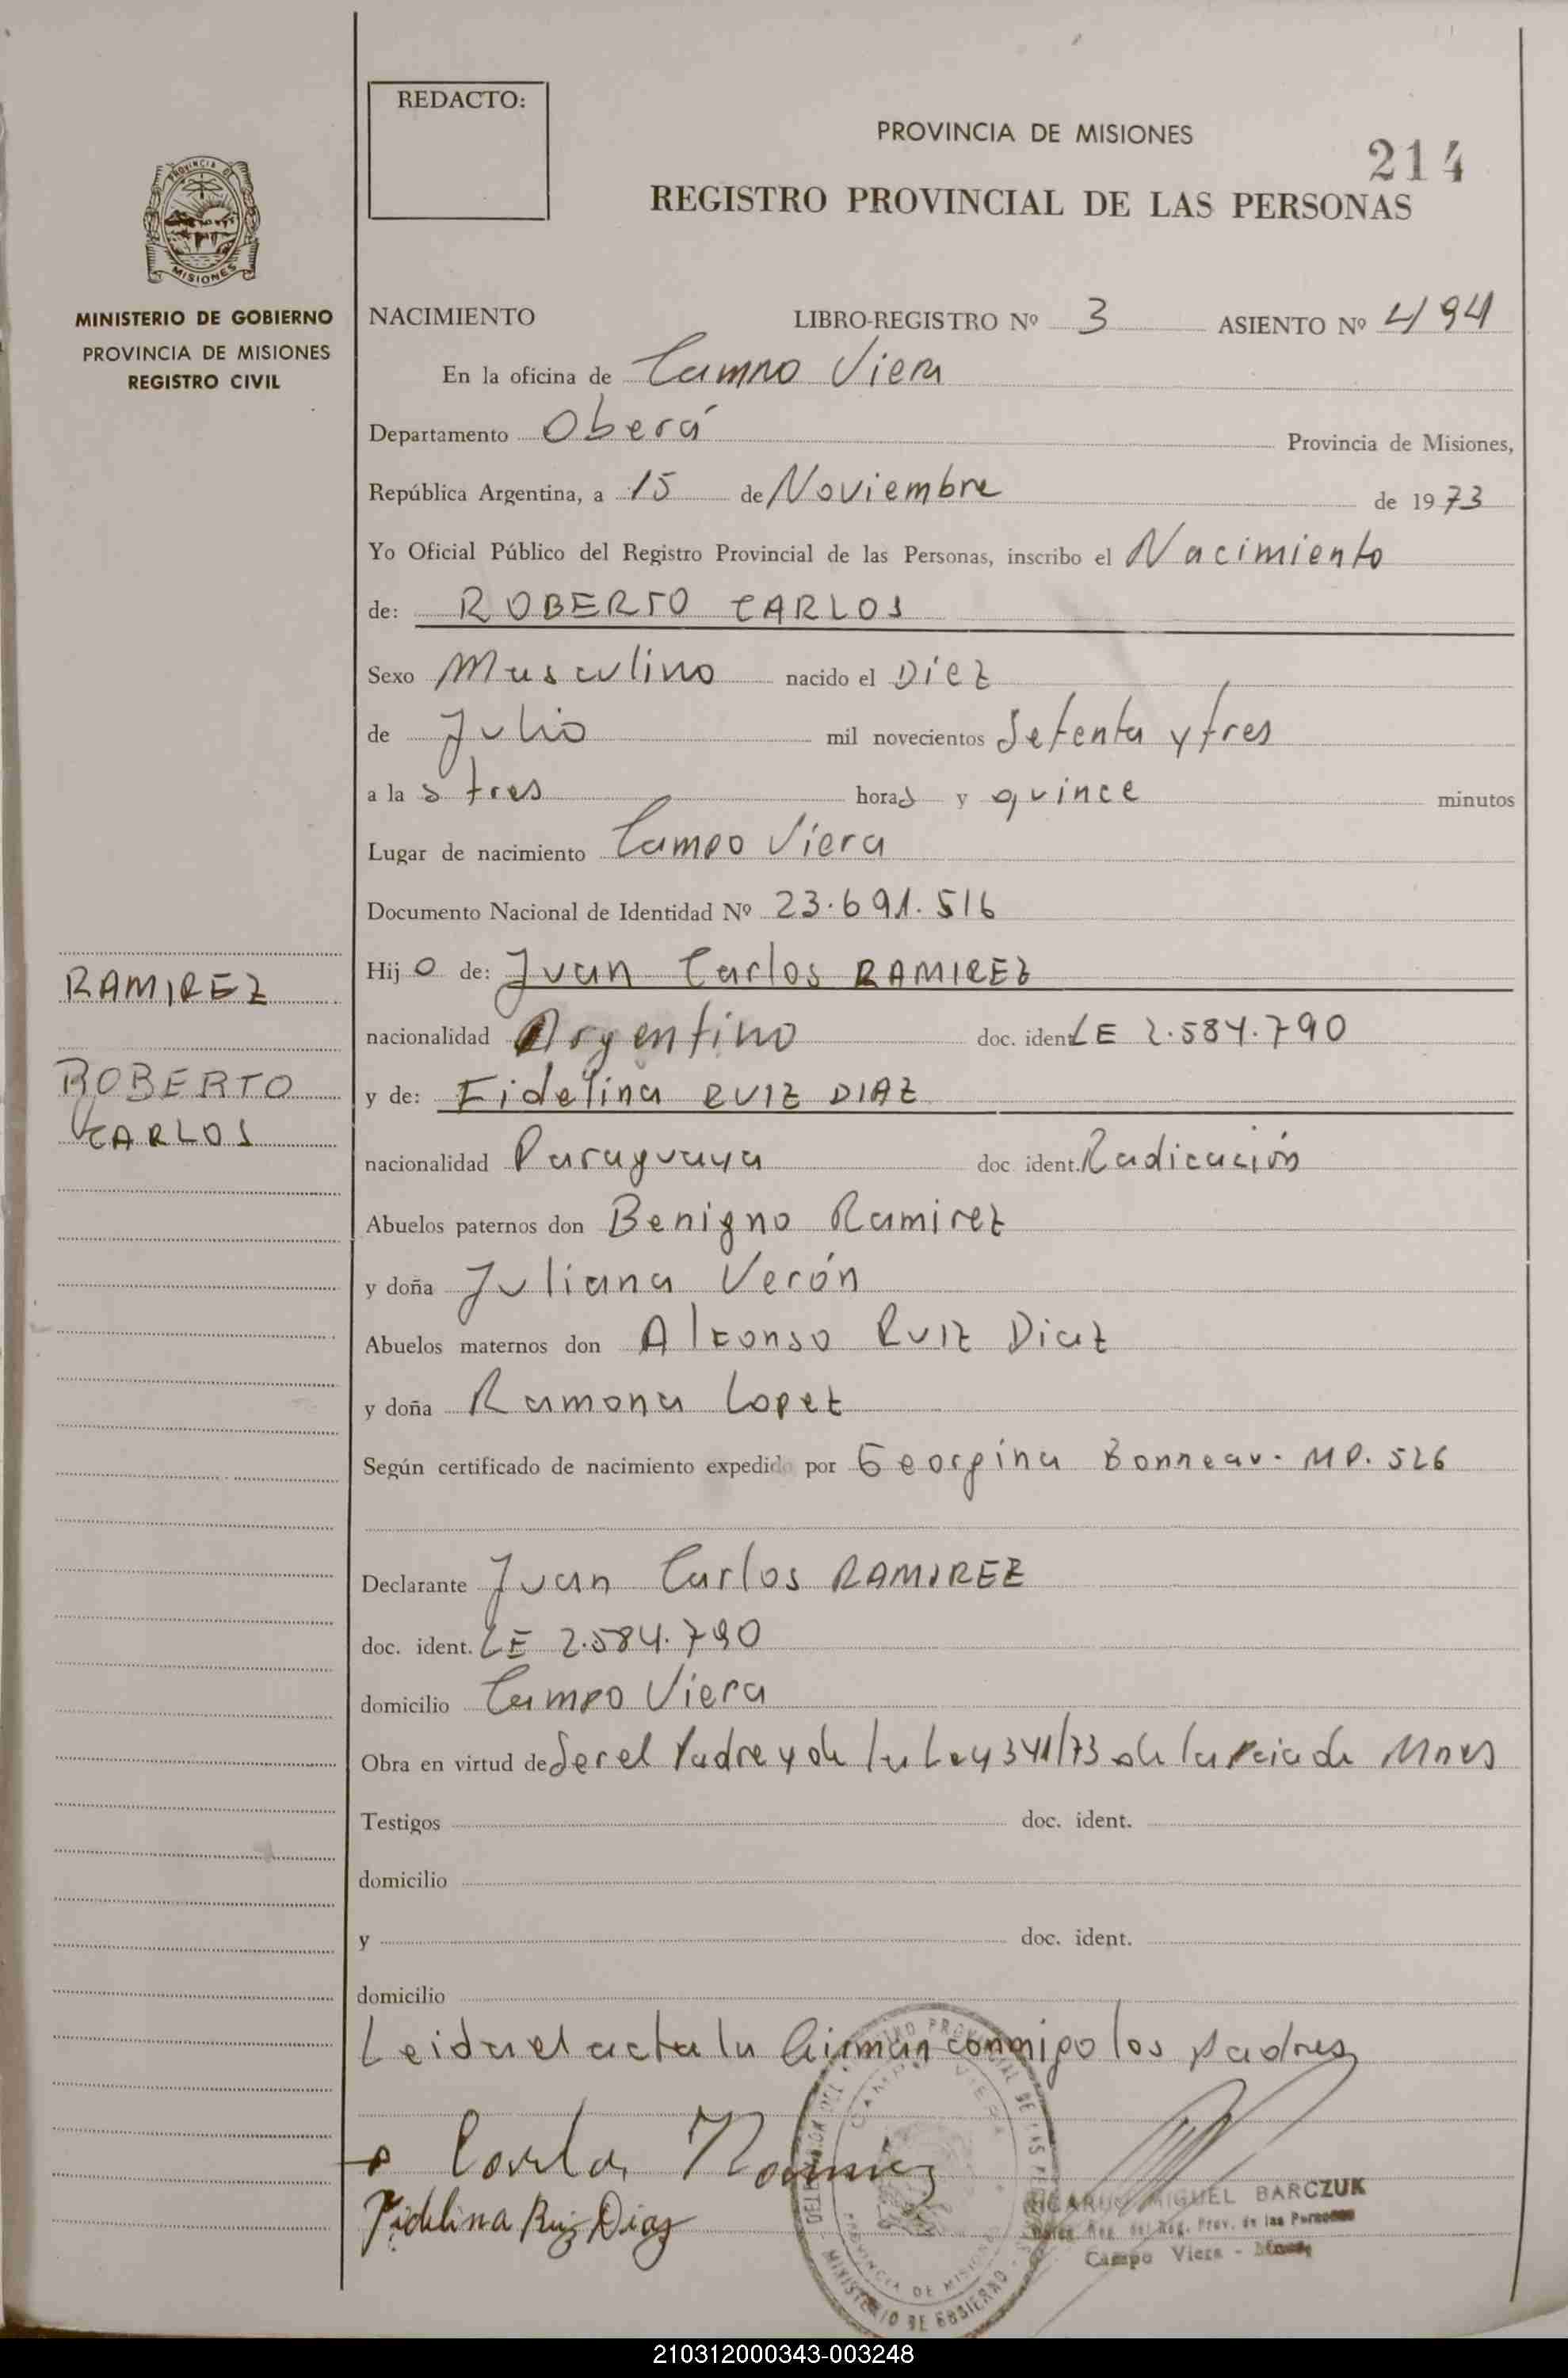 REDACTO:
PROVINCIA DE MISIONES
214
REGISTRO PROVINCIAL DE LAS PERSONAS
PROVINCIA DE
MISIONES
MINISTERIO DE GOBIERNO
PROVINCIA DE MISIONES
REGISTRO CIVIL
NACIMIENTO LIBRO-REGISTRO Nº 3 ASIENTO Nº 494
En la oficina de Campo Viera
Departamento Oberá Provincia de Misiones,
República Argentina, a 15 de Noviembre de 1973
Yo Oficial Público del Registro Provincial de las Personas, inscribo el Nacimiento
de: ROBERTO CARLOS
Sexo Masculino nacido el Diez
de Julio mil novecientos Setenta y tres
a las tres horas y quince minutos
Lugar de nacimiento Campo Viera
Documento Nacional de Identidad Nº 23.691.516
RAMIREZ
ROBERTO
CARLOS
Hijo de: Juan Carlos RAMIREZ
nacionalidad Argentino doc. ident. LE 2.584.790
y de: Fidelina RUIZ DIAZ
nacionalidad Paraguaya doc ident. Radicación
Abuelos paternos don Benigno Ramirez
y doña Juliana Verón
Abuelos maternos don Alfonso Ruiz Diaz
y doña Ramona Lopez
Según certificado de nacimiento expedido por Georgina Bonneau - MP. 526
Declarante Juan Carlos RAMIREZ
doc. ident. LE 2.584.790
domicilio Campo Viera
Obra en virtud de Ser el Padre y de la Ley 341/73 de la Pcia de Mnes
Testigos doc. ident.
domicilio
y doc. ident.
domicilio
Leida el acta la firman conmigo los padres
Carlos Ramirez
Fidelina Ruiz Diaz
RICARDO MIGUEL BARCZUK
Reg. del Reg. Prov. de las Personas
Campo Viera - Mnes.
DELEGACION DEL REGISTRO PROVINCIAL DE LAS PERSONAS
CAMPO VIERA
PROVINCIA DE MISIONES
MINISTERIO DE GOBIERNO
210312000343-003248